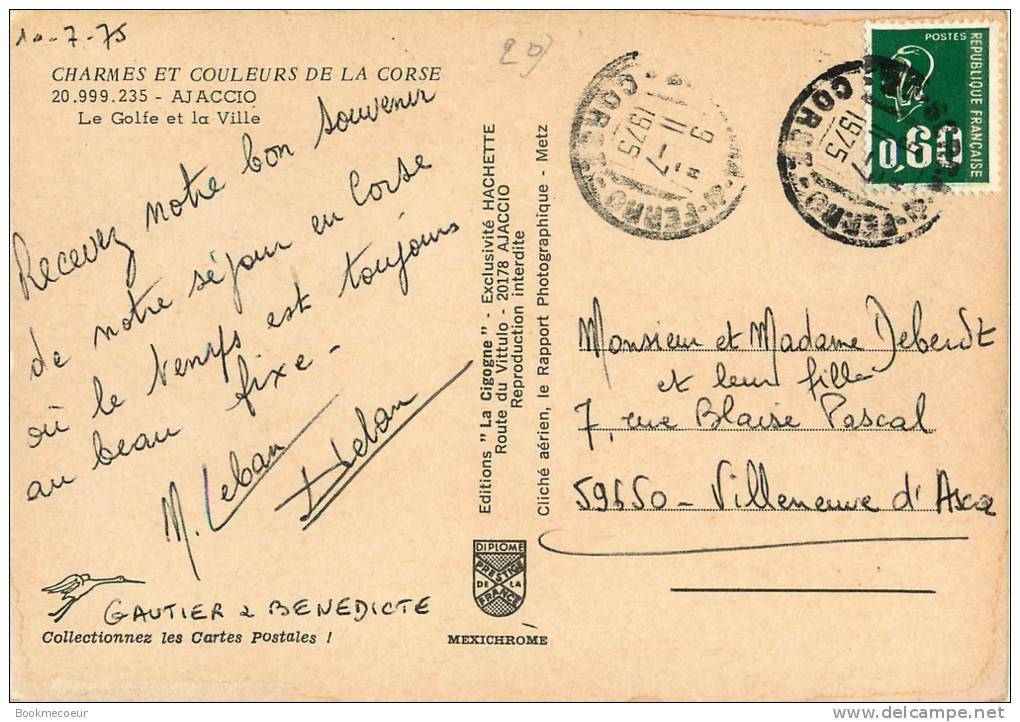 10-7-75
CHARMES ET COULEURS DE LA CORSE
20.999.235 - AJACCIO
Le Golfe et la Ville
Recevez notre bon souvenir
de notre séjour en Corse
où le temps est toujours
au beau fixe -
M. Leban
GAUTIER & BENEDICTE
Collectionnez les Cartes Postales !
Editions "La Cigogne" - Exclusivité HACHETTE
Route du Vittulo - 20178 AJACCIO
Reproduction interdite
Cliché aérien, le Rapport Photographique - Metz
DIPLOME
PRESTIGE
DE LA
FRANCE
MEXICHROME
20
9 H
11 - 7
1975
CORSE
POSTES
REPUBLIQUE FRANÇAISE
0,60
11 - 7
1975
CORSE
Monsieur et Madame Deberdt
et leur fille
7, rue Blaise Pascal
59650 - Villeneuve d'Ascq
Bookmecoeur